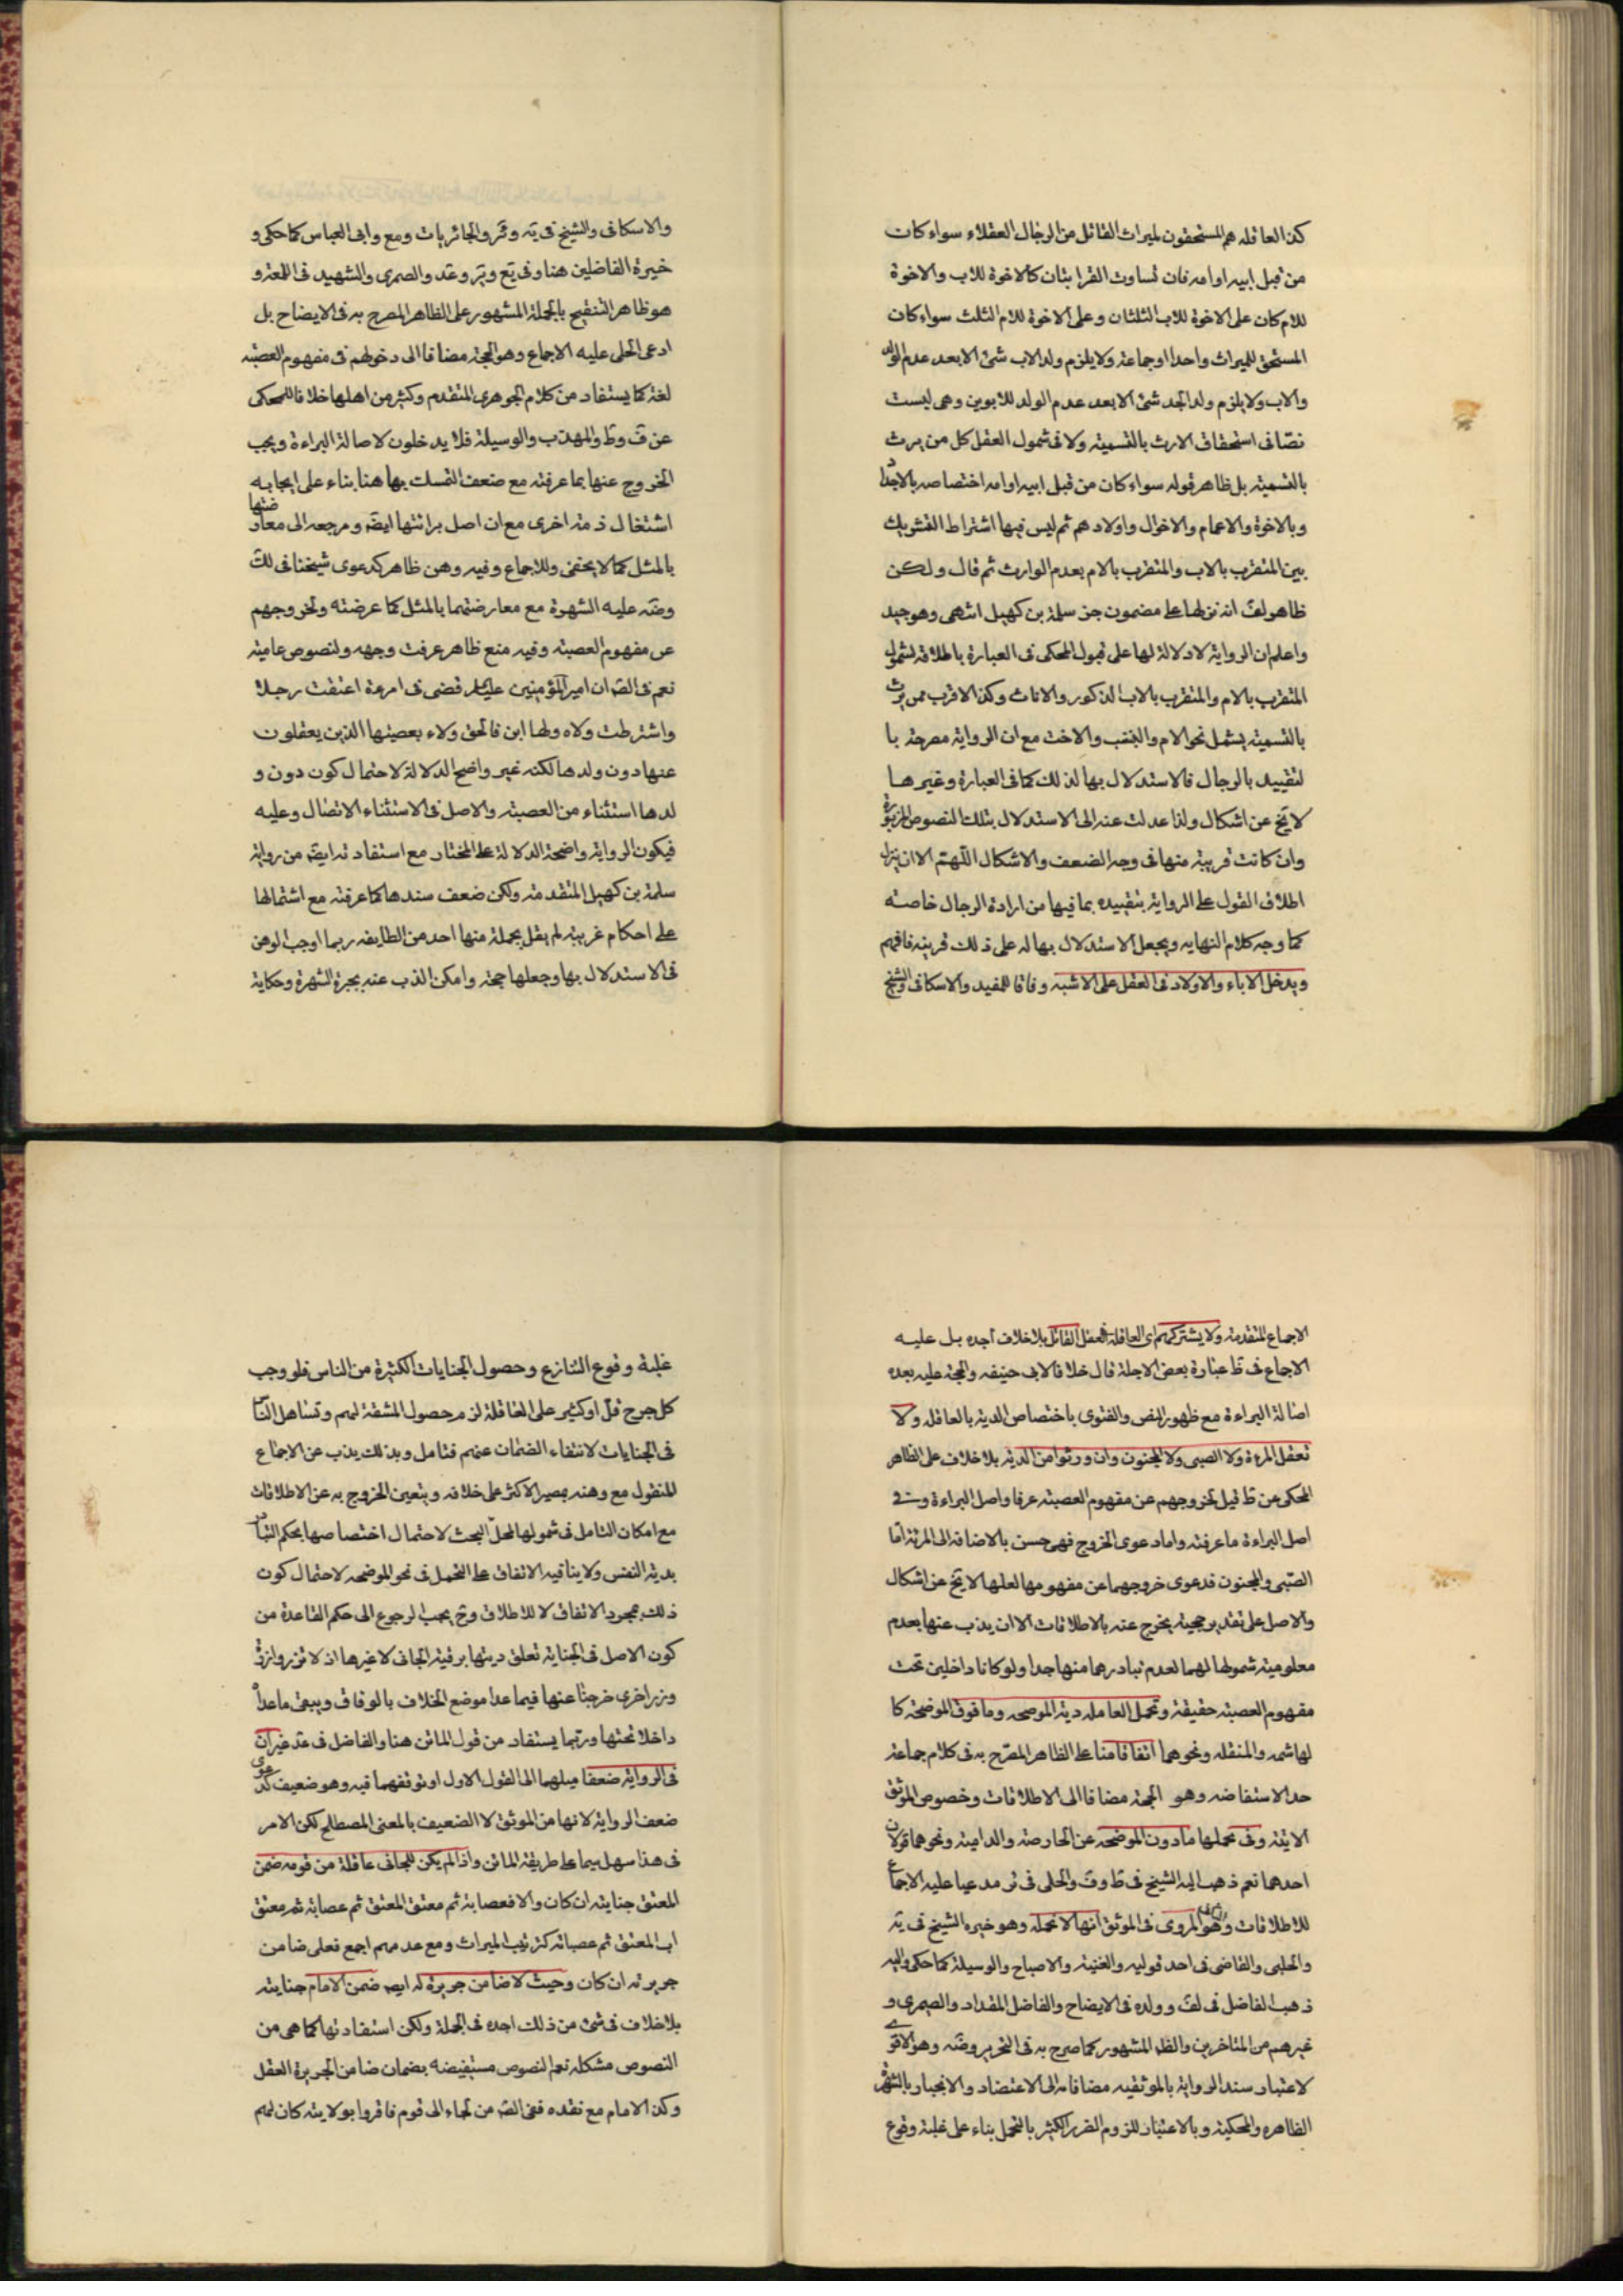 كذا العاقله هم المستحقون لميراث القاتل من الرجال العقلاء سواء كان
من قبل ابيه او امه فان تساوت القرابتان كالاخوة للاب والاخوة
للام كان على الاخوة للاب الثلثان وعلى الاخوة للام الثلث سواء كان
المستحق للميراث واحدا او جماعة ولا يلزم ولد الاب شئ الا بعد عدم الولد
والاب ولا يلزم ولد الجد شئ الا بعد عدم الولد للابوين وهى ليست
نصّا فى استحقاق الارث بالتسمية ولا فى شمول العقل كل من يرث
بالتسمية بل ظاهر قوله سواء كان من قبل ابيه او امه اختصاصه بالاجداد
وبالاخوة والاعمام والاخوال واولادهم ثم ليس فيها اشتراط التشريك
بين المتقرب بالاب والمتقرب بالام بعدم الوارث ثم قال ولكن
ظاهر لف انه نزلها على مضمون خبر سلمة بن كهيل انتهى وهو جيد
واعلم ان الرواية لا دلالة لها على قبول المحكى فى العبارة باطلاقه لشمول
المتقرب بالام والمتقرب بالاب الذكور والاناث وكذا الاقرب ممن يرث
بالتسمية يشمل نحو الام والبنت والاخت مع ان الرواية مصرحة با
لتقييد بالرجال فالاستدلال بها لذلك كما فى العبارة وغيرها
لا يخ عن اشكال ولذا عدلت عنه الى الاستدلال بتلك النصوص المزبورة
وان كانت قريبة منها فى وجه الضعف والاشكال اللهتم الا ان ينزل
اطلاق القول على الرواية بتقييده بما فيها من ارادة الرجال خاصته
كما وجه كلام النهايه ويجعل الاستدلال بها له على ذلك قرينة فافهم
ويدخل الاباء والاولاد فى العقل على الاشبه وفاقا للمفيد والاسكافى والشيخ
والاسكافى والشيخ فى يه وئر والحائريات ومع وابى العباس كما حكى و
خيرة الفاضلين هنا وفى يع وير وعد والصمرى والشهيد فى اللمعة و
هو ظاهر التنقيح بالجملة المشهور على الظاهر المصرح به فى الايضاح بل
ادعى الحلى عليه الاجماع وهو الحجة مضافا الى دخولهم فى مفهوم العصبة
لغة كما يستفاد من كلام الجوهرى المتقدم وكثير من اهلها خلافا للمحكى
عن ف وط والمهذب والوسيلة فلا يدخلون لاصالة البراءة ويجب
الخروج عنها بما عرفته مع ضعف التمسك بها هنا بناء على ايجابه
اشتغال ذمة اخرى مع ان اصل برائتها ايضه ومرجعه الى معارضتها
بالمثل كما لا يخفى وللاجماع وفيه وهن ظاهر كدعوى شيخنا فى لك
وضه عليه الشهرة مع معارضتهما بالمثل كما عرضته ولخروجهم
عن مفهوم العصبة وفيه منع ظاهر عرفت وجهه ولنصوص عامية
نعم فى الصه ان امير المؤمنين عليلم قضى فى امرءة اعتقت رجلا
واشترطت ولاه ولها ابن فالحق ولاء بعصبتها الذين يعقلون
عنها دون ولدها لكنه غير واضح الدلالة لاحتمال كون دون و
لدها استثناء من العصبة والاصل فى الاستثناء الاتصال وعليه
فيكون الرواية واضحة الدلالة على المختار مع استفادته ايضه من رواية
سلمة بن كهيل المتقدمة ولكن ضعف سندها كما عرفته مع اشتمالها
على احكام غريبة لم يقل بجملة منها احد من الطايفه ربما اوجب الوهن
فى الاستدلال بها وجعلها حجة وامكن الذب عنه بجبرة الشهرة وحكاية
الاجماع المتقدمة ولا يشتركهم اى العاقله فى عقل القاتل بلا خلاف اجده بل عليه
الاجماع فى ظ عبارة بعض الاجلة قال خلافا لابى حنيفه والحجة عليه بعده
اصالة البراءة مع ظهور النص والفتوى باختصاص الدية بالعاقله ولا
تعقل المرءة ولا الصبى ولا المجنون وان ورثوا من الدية بلا خلاف على الظاهر
المحكى عن ط قيل لخروجهم عن مفهوم العصبة عرفا واصل البراءة وفى
اصل البراءة ما عرفته واما دعوى الخروج فهى حسن بالاضافه الى المرئة اما
الصّبى والمجنون فدعوى خروجهما عن مفهومها لعلها لا يخ عن اشكال
والاصل على تقدير حجيته يخرج عنه بالاطلاقات الا ان يذب عنها بعدم
معلومية شمولها لهما لعدم تبادرهما منها جدا ولو كانا داخلين تحت
مفهوم العصبة حقيقة وتحمل العاقله دية الموضحه وما فوق الموضحة كا
لهاشمه والمنقله ونحوهما اتفاقا منا على الظاهر المصرّح به فى كلام جماعة
حد الاستفاضه وهو الحجة مضافا الى الاطلاقات وخصوص الموثق
الاتية وفى تحملها ما دون الموضحه عن الحارصة والدامية ونحوهما قولان
احدهما نعم ذهب اليه الشيخ فى ط وف والحلى فى ئر مدعيا عليه الاجماع
للاطلاقات وهو المروى فى الموثق انها لا تحمله وهو خيره الشيخ فى يه
والحلبى والقاضى فى احد قوليه والغنية والاصباح والوسيلة كما حكى واليه
ذهب الفاضل فى لف وولده فى الايضاح والفاضل المقداد والصمرى و
غيرهم من المتاخرين والظ المشهور كما صرح به فى التحرير وضه وهو الاقوى
لاعتبار سند الرواية بالموثقيه مضافا الى الاعتضاد والانجبار بالشهرة
الظاهره والمحكية وبالاعتبار للزوم الضرر الكثير بالتحمل بناء على غلبة وقوع
غلبة وقوع التنازع وحصول الجنايات الكثيرة من الناس فلو وجب
كل جرح قل او كثير على العاقلة لزم حصول المشقة لهم وتساهل الناس
فى الجنايات لانتفاء الضمان عنهم فتامل وبذلك يذب عن الاجماع
المنقول مع وهنه بمصير الاكثر على خلافه ويتعين الخروج به عن الاطلاقات
مع امكان التامل فى شمولها لمحل البحث لاحتمال اختصاصها بحكم التبادر
بدية النفس ولا ينافيه الاتفاق على التحمل فى نحو الموضحه لاحتمال كون
ذلك بمجرد الاتفاق لا للاطلاق وح يجب الرجوع الى حكم القاعدة من
كون الاصل فى الجناية تعلق ديتها برقبة الجانى لا غيرها اذ لا تزر وازرة
وزر اخرى خرجنا عنها فيما عدا موضع الخلاف بالوفاق ويبقى ما عداه
داخلا تحتها وربما يستفاد من قول الماتن هنا والفاضل فى عد غير ان
فى الرواية ضعفا ميلهما الى القول الاول او توقفهما فيه وهو ضعيف كدعوى
ضعف الرواية لانها من الموثق لا الضعيف بالمعنى المصطلح لكن الامر
فى هذا سهل سيما على طريقة الماتن واذا لم يكن للجانى عاقلة من قومه ضمن
المعتق جنايته ان كان والا فعصابته ثم معتق المعتق ثم عصابة ثم معتق
اب المعتق ثم عصباته كترتيب الميراث ومع عدمهم اجمع فعلى ضامن
جريرته ان كان وحيث لا ضامن جريرة له ايضه ضمن الامام جنايته
بلا خلاف فى شئ من ذلك اجده فى الجملة ولكن استفادتها كما هى من
النصوص مشكله نعم النصوص مستفيضه بضمان ضامن الجريرة العقل
وكذا الامام مع فقده ففى الصه من لجاء الى قوم فاقروا بولايته كان لهم